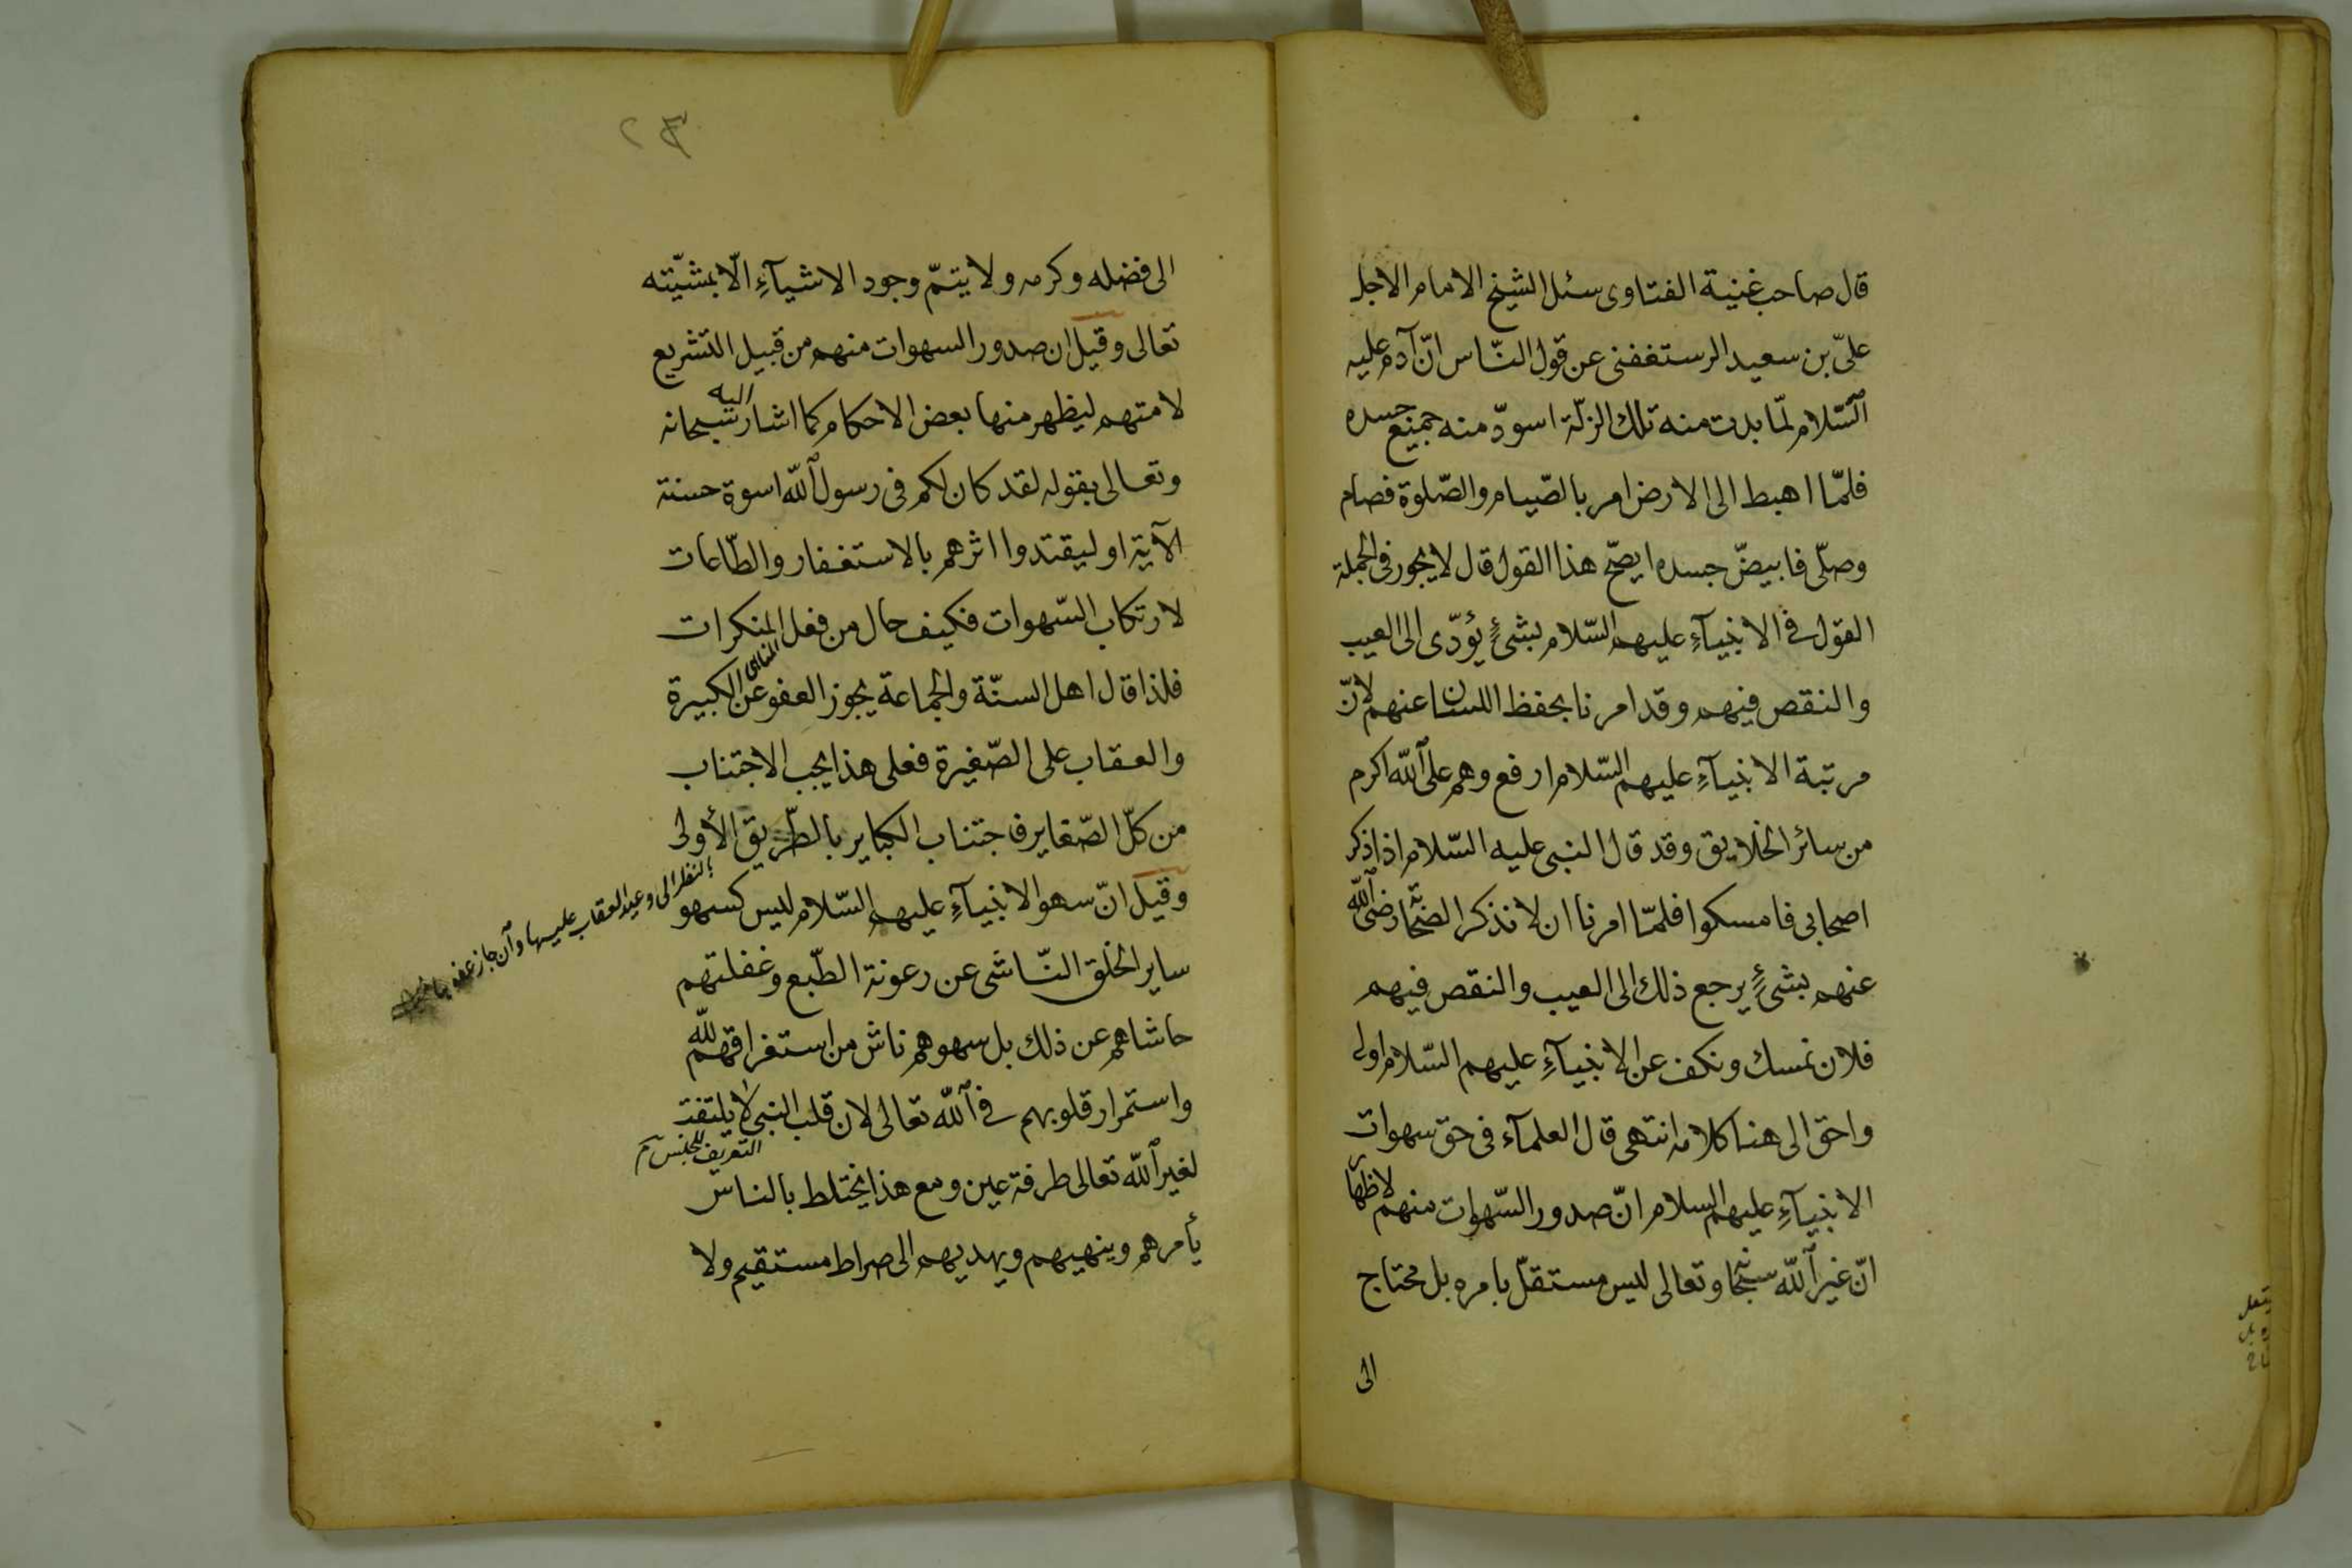 قال صاحب غنية الفتاوى سئل الشيخ الامام الاجل
علىّ بن سعيد الرستغفنى عن قول النّاس انّ آدم عليه
السّلام لمّا بدت منه تلك الزلّة اسودّ منه جميع جسده
فلمّا اهبط الى الارض امر بالصّيام والصّلوة فصام
وصلّى فابيضّ جسده ايصحّ هذا القول قال لا يجوز فى الجملة
القول فى الانبيآءِ عليهم السّلام بشئٍ يؤدّى الى العيب
والنقص فيهم وقد امرنا بحفظ اللسان عنهم لانّ
مرتبة الانبيآءِ عليهم السّلام ارفع وهم على اللّه اكرم
من سائر الخلايق وقد قال النبى عليه السّلام اذا ذكر
اصحابى فامسكوا فلمّا امرنا ان لا نذكر الصّحابة رضى اللّه
عنهم بشئٍ يرجع ذلك الى العيب والنقص فيهم
فلان نمسك ونكف عن الانبيآءِ عليهم السّلام اولى
واحق الى هنا كلامه انتهى قال العلمآء فى حق سهوات
الانبيآءِ عليهم السلام انّ صدور السّهوات منهم لاظهار
انّ غير اللّه سبحانه وتعالى ليس مستقلّ بامره بل محتاج
الى
٢٣
الى فضله وكرمه ولا يتمّ وجود الاشيآءِ الّا بمشيّته
تعالى وقيل ان صدور السهوات منهم من قبيل التشريع
لامتهم ليظهر منها بعض الاحكام كما اشار اليه سبحانه
وتعالى بقوله لقد كان لكم فى رسول اللّه اسوة حسنة
الآية او ليقتدوا اثرهم بالاستغفار والطّاعات
لارتكاب السّهوات فكيف حال من فعل المنكرات
فلذا قال اهل السنّة والجماعة يجوز العفو عن الكبيرة
والعقاب على الصّغيرة فعلى هذا يجب الاجتناب
من كلّ الصّغاير فاجتناب الكباير بالطّريق الأولى
بالنظر الى وعيد العقاب عليها وآن جاز عفو
وقيل انّ سهو الانبيآءِ عليهم السّلام ليس كسهو
ساير الخلق النّاشى عن رعونة الطّبع وغفلتهم
حاشاهم عن ذلك بل سهوهم ناش من استغراقهم للّه
واستمرار قلوبهم فى اللّه تعالى لان قلب النبى لا يلتفت
التعريف للجنس
لغير اللّه تعالى طرفة عين ومع هذا يختلط بالناس
يأمرهم وينهيهم ويهديهم الى صراط مستقيم ولا